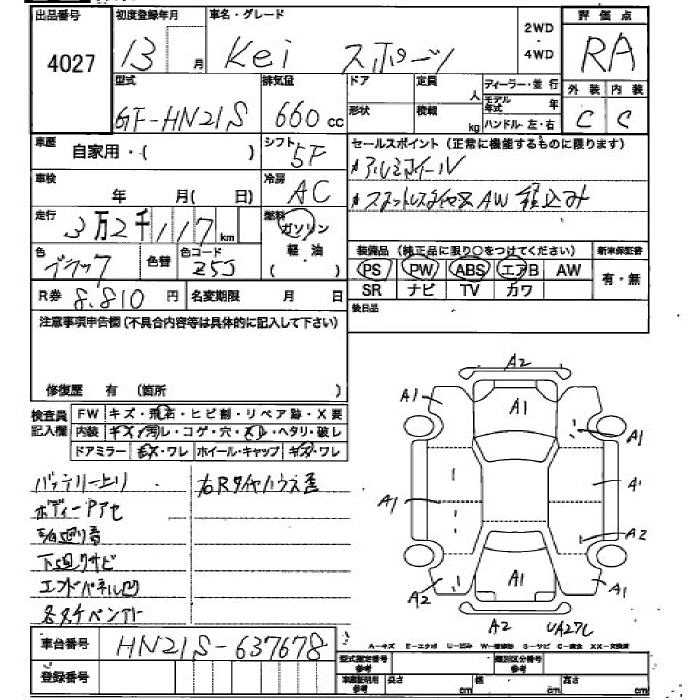 出品番号 初度登録年月 車名・グレード 2WD・4WD 評価点
4027 13 月 Kei スポーツ RA
型式 排気量 ドア 定員 人 ディーラー・並行 外装 内装
GF-HN21S 660 cc 形状 積載 kg モデル年式 年 C C
ハンドル 左・右
車歴 自家用・( ) シフト 5F セールスポイント(正常に機能するものに限ります)
アルミホイール
車検 年 月(日) 冷房 AC
スタットレスタイヤ AW 積込み
走行 3万2千117km 燃料 ガソリン 軽・油 ( )
装備品(純正品に限り○をつけてください) 新車保証書
色 ブラック 色替 色コード Z5J
PS PW ABS エアB AW 有・無
SR ナビ TV カワ
R券 8.810 円 名変期限 月 日
後日品
注意事項申告欄(不具合内容等は具体的に記入して下さい)
修復歴 有 (箇所 )
検査員記入欄 FW キズ・飛石・ヒビ割・リペア跡・X要
内装 キズ・汚レ・コゲ・穴・スレ・ヘタリ・破レ
ドアミラー キズ・ワレ ホイール・キャップ キズ・ワレ
バッテリー上り 右Rタイヤハウス歪
ボディーPアセ
下廻りサビ
エンドパネル凹
A2
A1 A1 A1
A1 A1
A2
A2 A1 A1
A2 UA27L
車台番号 HN21S-637678
A=キズ E=エクボ U=凹み W=補修跡 S=サビ C=腐食 XX=交換済
登録番号 型式指定番号 参考 類別区分番号 参考
車庫証明用 参考 長さ cm 幅 cm 高さ cm